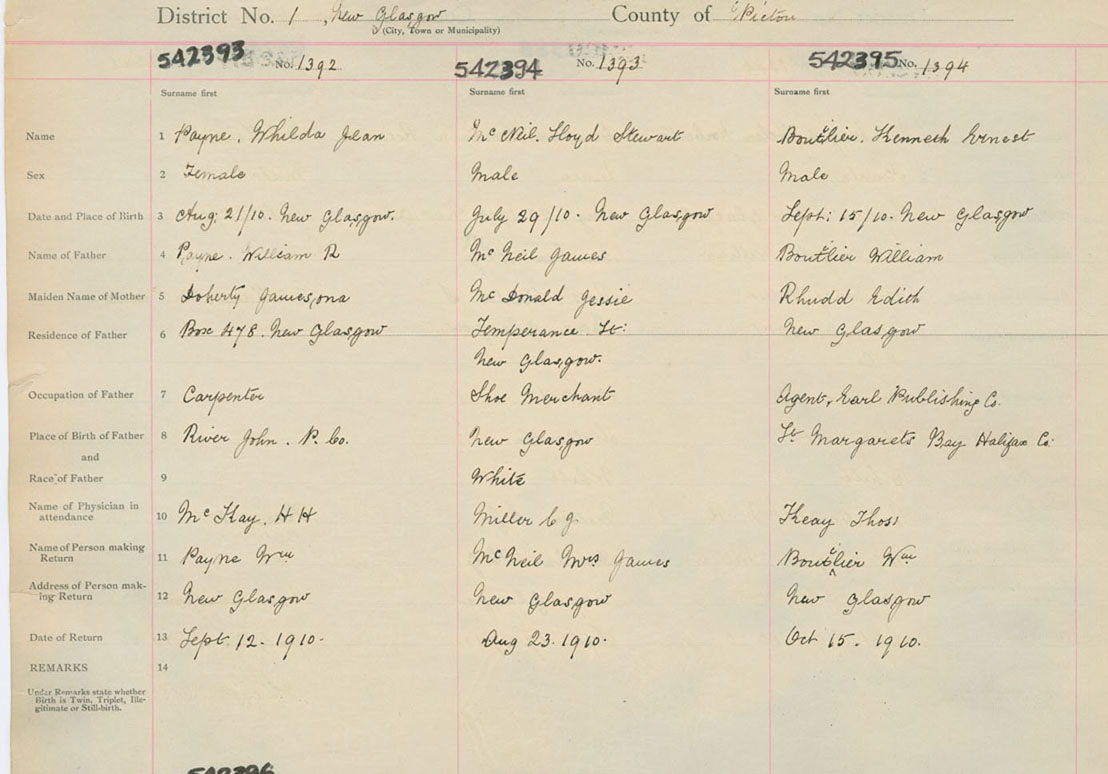 District No. 1, New Glasgow County of Pictou
(City, Town or Municipality)
542393 No. 1392 542394 No. 1393 542395 No. 1394
Surname first Surname first Surname first
Name 1 Payne. Whilda Jean McNeil. Lloyd Stewart Boutilier. Kenneth Ernest
Sex 2 Female Male Male
Date and Place of Birth 3 Aug: 21/10. New Glasgow. July 29/10. New Glasgow Sept: 15/10. New Glasgow
Name of Father 4 Payne. William R McNeil James Boutilier William
Maiden Name of Mother 5 Doherty Jamesona McDonald Jessie Rhudd Edith
Residence of Father 6 Box 478. New Glasgow Temperance St: New Glasgow
New Glasgow.
Occupation of Father 7 Carpenter Shoe Merchant Agent, Earl Publishing Co.
Place of Birth of Father 8 River John. P. Co. New Glasgow St Margarets Bay Halifax Co:
and
Race of Father 9 White
Name of Physician in
attendance 10 McKay. H H Miller C J Keay Thos
Name of Person making
Return 11 Payne Wm McNeil Mrs James Boutilier Wm
Address of Person mak-
ing Return 12 New Glasgow New Glasgow New Glasgow
Date of Return 13 Sept. 12. 1910. Aug 23. 1910. Oct 15. 1910.
REMARKS 14
Under Remarks state whether
Birth is Twin, Triplet, Ille-
gitimate or Still-birth.
542396